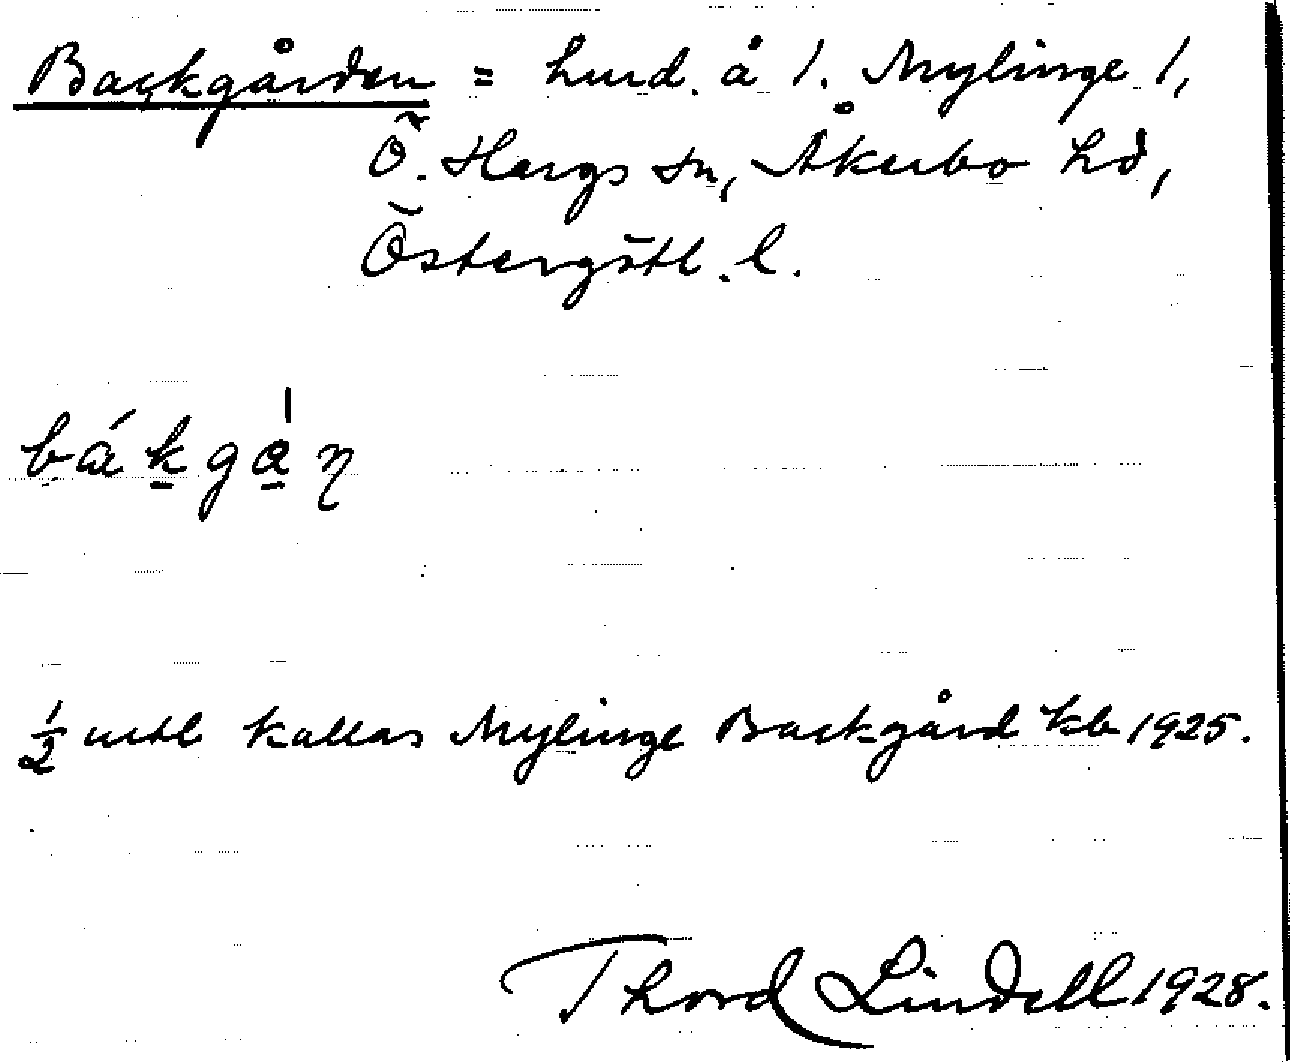 Backgården = hmd. å 1. Mylinge 1,
Ö. Hargs sn, Åkerbo hd,
Östergötl. l.
bákgàn
1/2 mtl kallas Mylinge Backgård kb 1925.
Thord Lindell 1928.